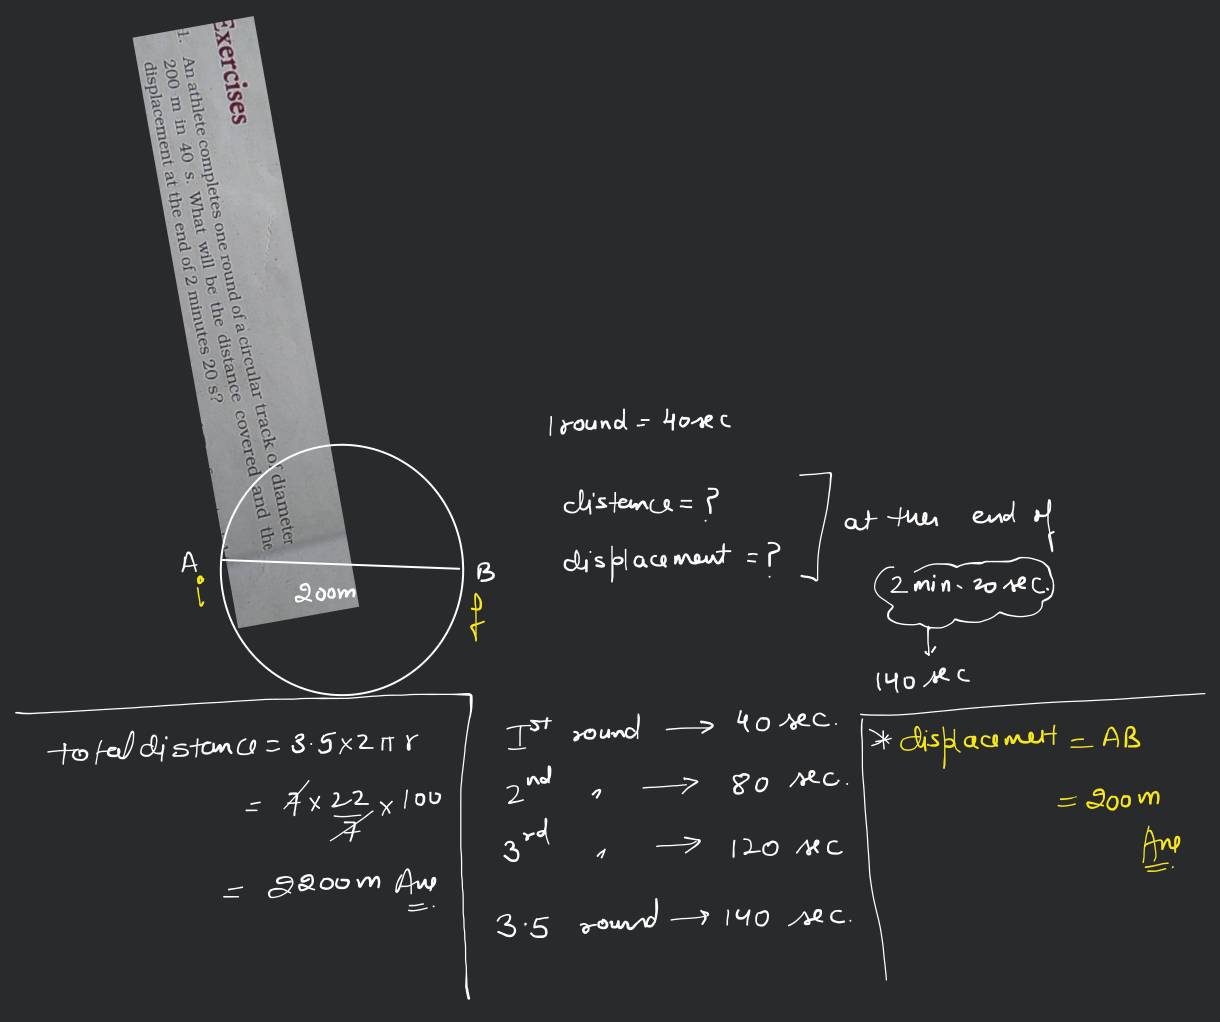 Exercises
1. An athlete completes one round of a circular track of diameter
200 m in 40 s. What will be the distance covered and the
displacement at the end of 2 minutes 20 s?
1 round = 40sec
distance = ?
displacement = ?
at the end of
2 min. 20 sec.
140 sec
A
i
200m
B
f
total distance = 3.5 x 2 π r
= 7 x 22/7 x 100
= 2200m Ans
Ist round → 40 sec.
2nd " → 80 sec.
3rd " → 120 sec
3.5 round → 140 sec.
* displacement = AB
= 200m
Ans